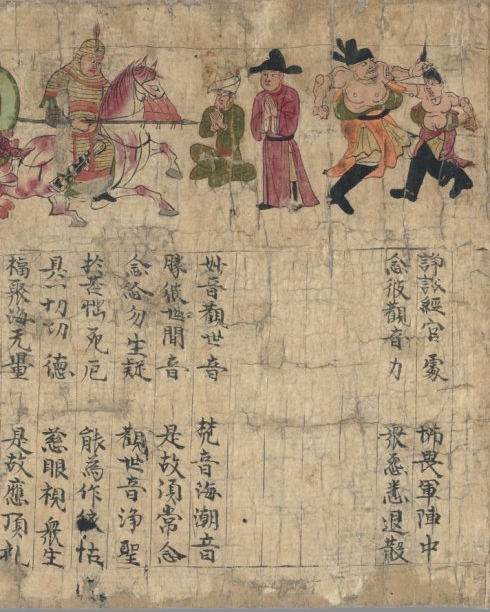 諍訟經官處　怖畏軍陣中
念彼觀音力　衆怨悉退散
妙音觀世音　梵音海潮音
勝彼世間音　是故須常念
念念勿生疑　觀世音淨聖
於苦惱死厄　能為作依怙
具一切功德　慈眼視衆生
福聚海无量　是故應頂礼